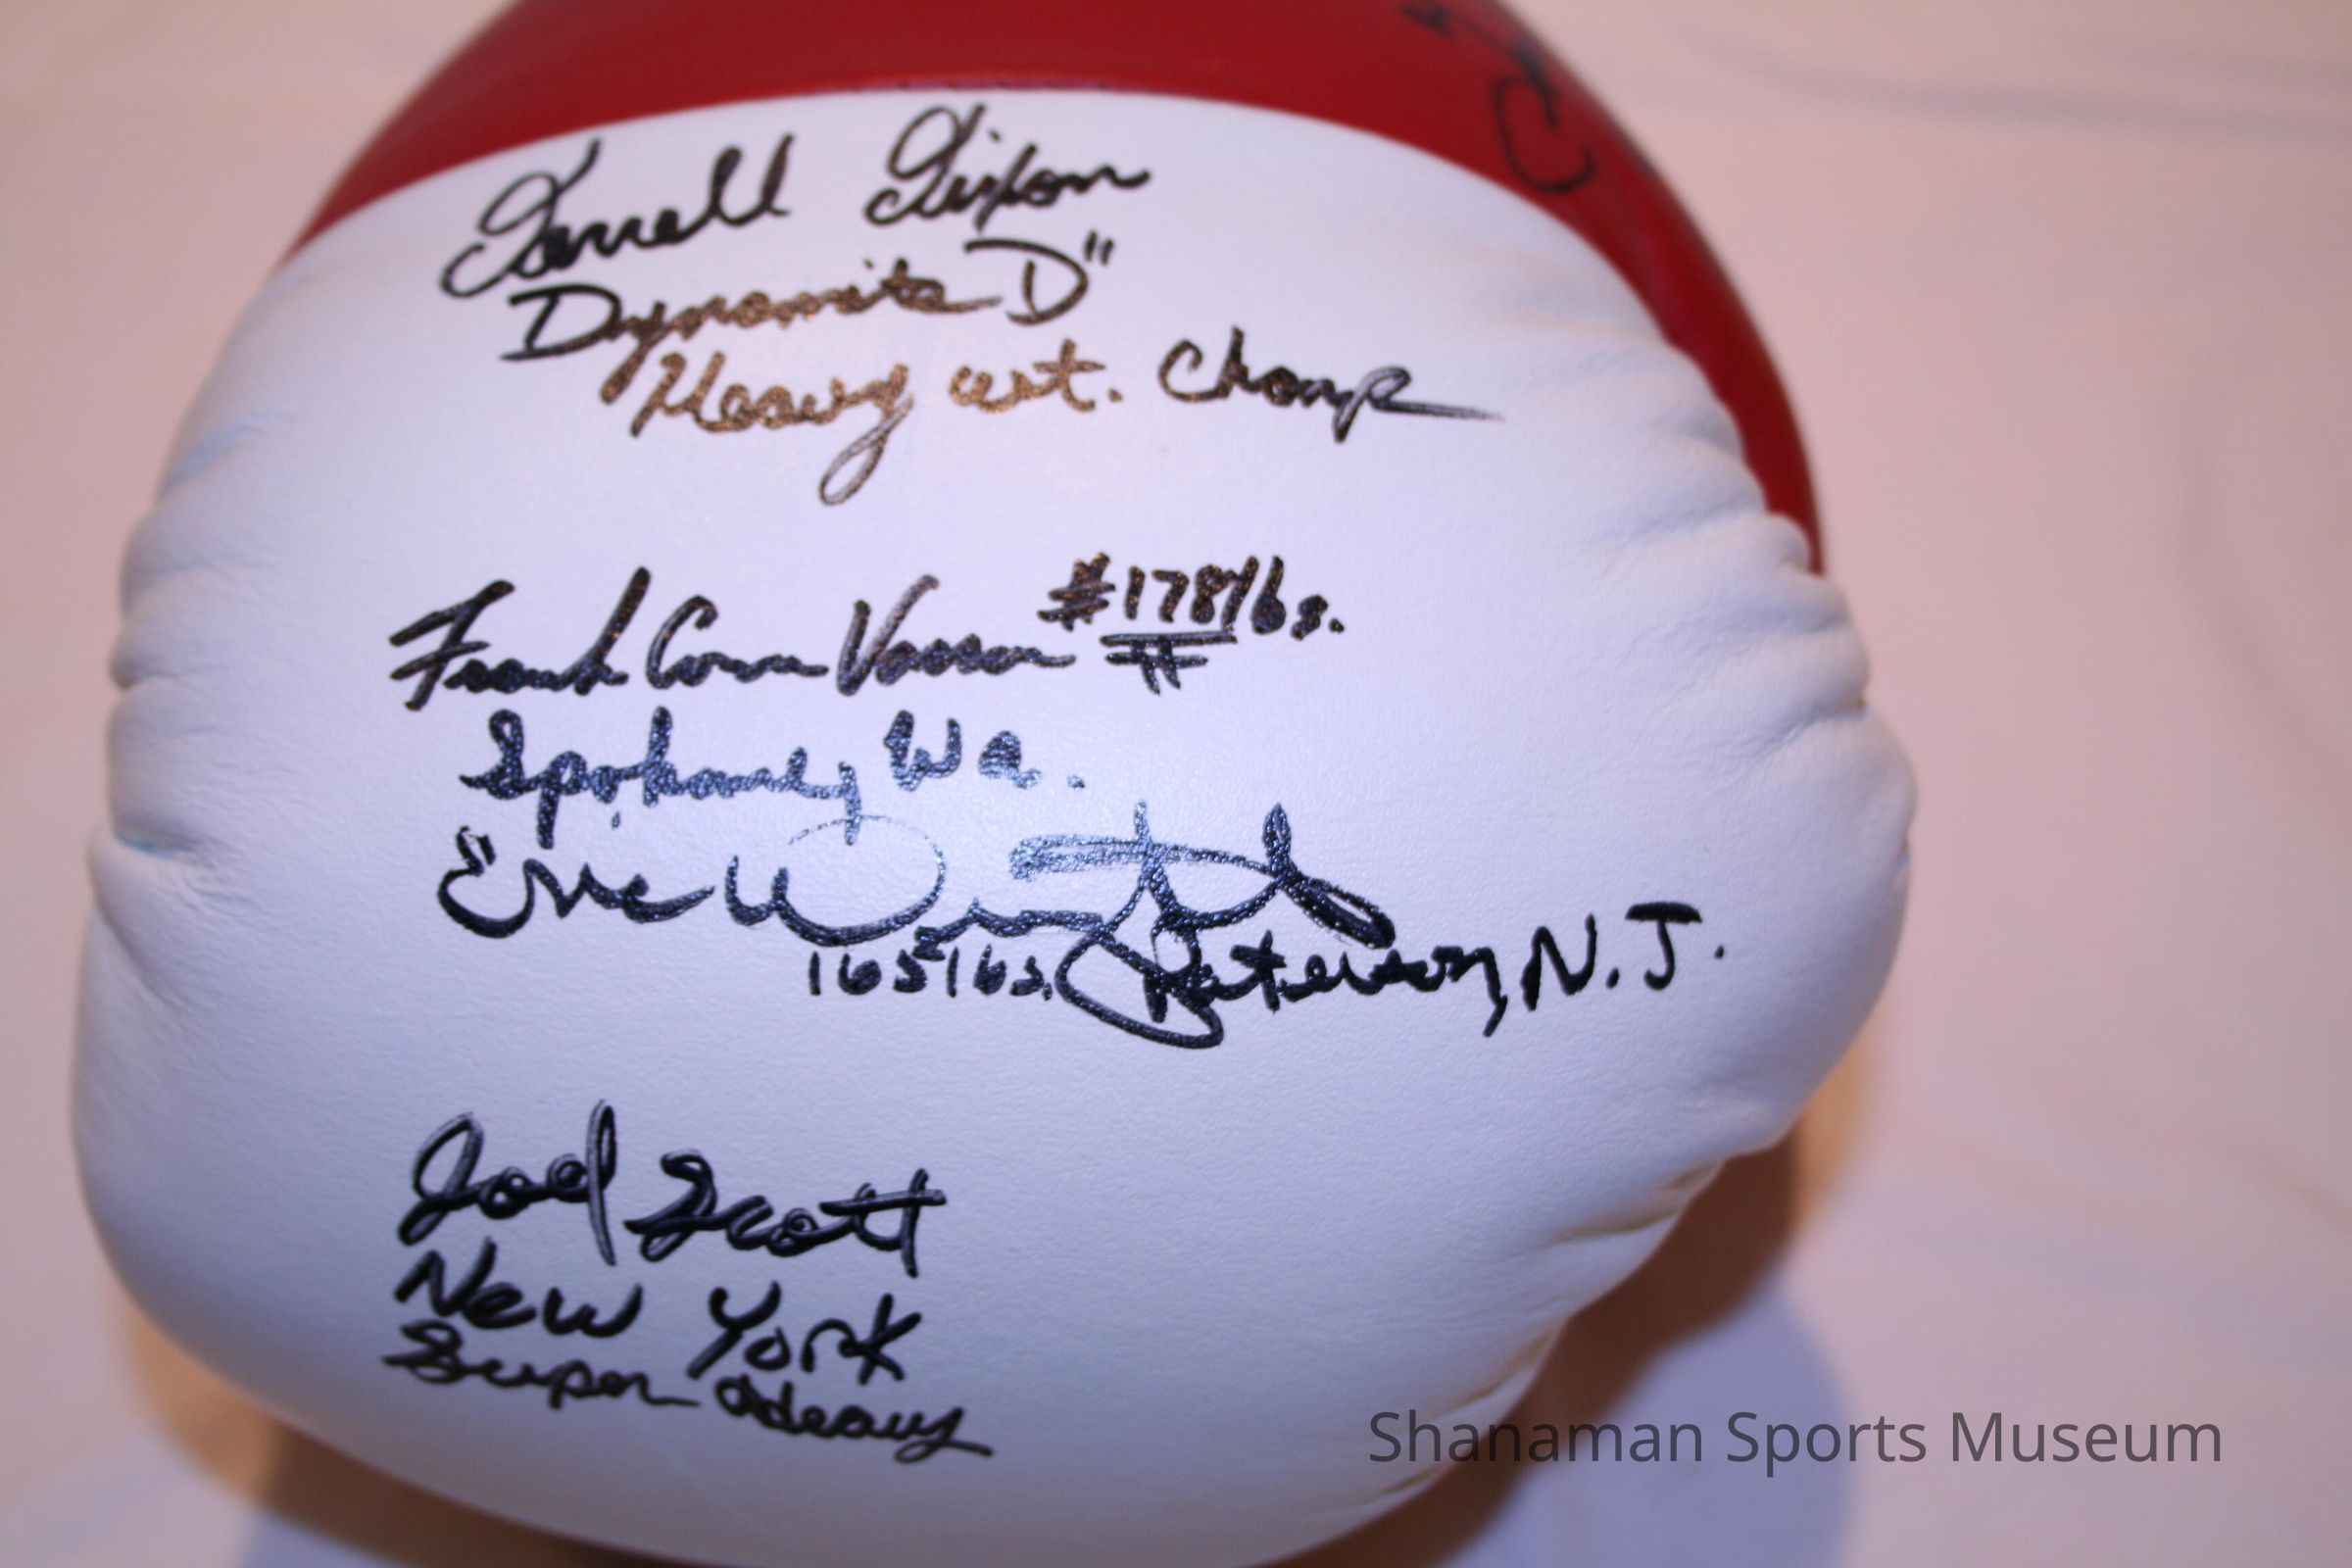 Darrell Dixon
Dynamite D"
Heavy wt. Champ
Frank Vassar #178 lbs.
Spokane, Wa.
"Eric Wright
165 lbs. Paterson, N.J.
Joel Scott
New York
Super Heavy
Shanaman Sports Museum